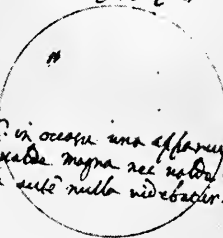 in occasu una
valde magna nec valde
autē nulla videbatur.